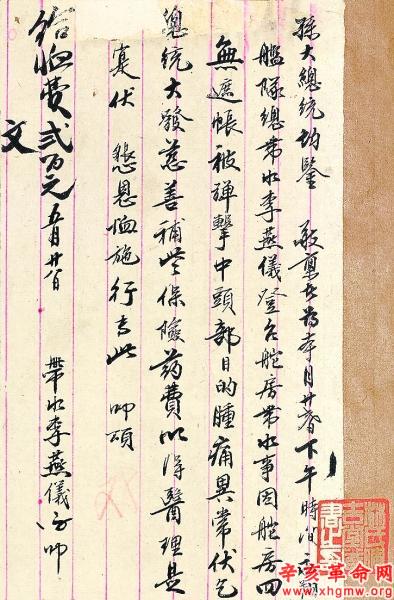 孫大總統鈞鑒 敬稟者為本月廿 下午時
艦隊總帶水李燕儀登台舵房帶水事因舵房四
無遮帳被彈擊中頭部目的腫痛異常伏乞
總統大發慈善補些保險药費以得醫理是
寔伏 懇恩恤施行专此 叩頌
帶水李燕儀 叩
給恤費弍百元 五月廿 日
文
辛亥·革命网
www.xhgmw.org